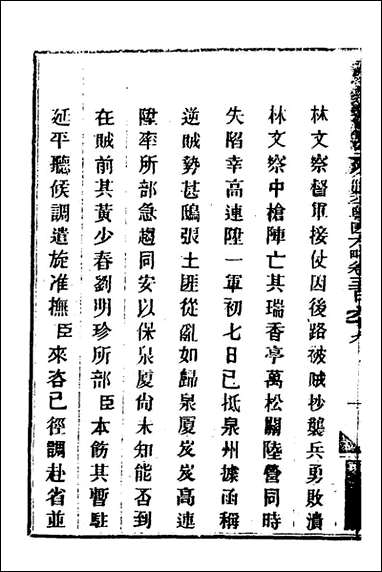 林文察督軍接仗因後路被賊抄襲兵勇敗潰
林文察中槍陣亡其瑞香亭萬松關陸營同時
失陷幸高連陞一軍初七日已抵泉州據函稱
逆賊勢甚鴟張土匪從亂如歸泉厦岌岌高連
陞率所部急趨同安以保泉厦尙未知能否到
在賊前其黃少春劉明珍所部臣本飭其暫駐
延平聽候調遣旋准撫臣來咨已徑調赴省並